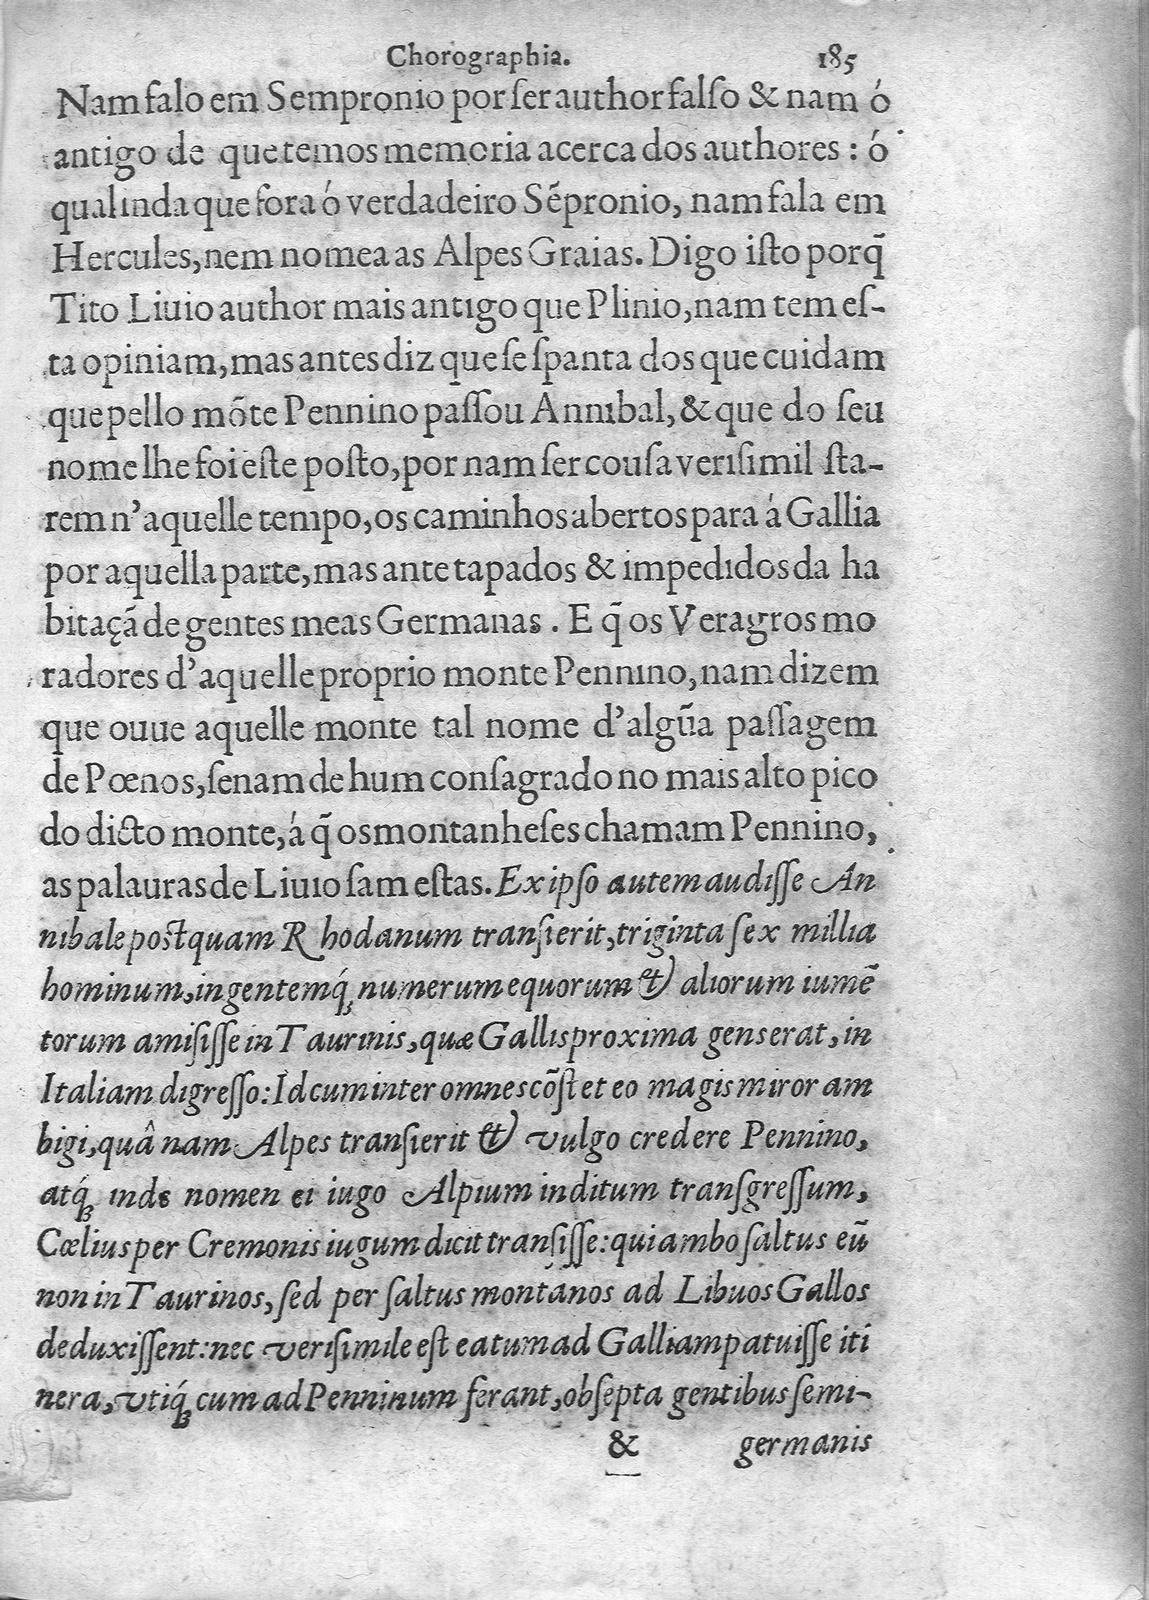 Chorographia. 185
Nam falo em Sempronio por ſer author falſo & nam ó
antigo de que temos memoria acerca dos authores : ó
qual inda que fora ó verdadeiro Sẽpronio, nam fala em
Hercules, nem nomea as Alpes Graias. Digo iſto porq̃
Tito Liuio author mais antigo que Plinio, nam tem eſ-
ta opiniam, mas antes diz que ſe ſpanta dos que cuidam
que pello mõte Pennino paſſou Annibal, & que do ſeu
nome lhe foi eſte poſto, por nam ſer couſa veriſimil ſta-
rem n'aquelle tempo, os caminhos abertos para á Gallia
por aquella parte, mas ante tapados & impedidos da ha
bitaçã de gentes meas Germanas. E q̃ os Veragros mo
radores d'aquelle proprio monte Pennino, nam dizem
que ouue aquelle monte tal nome d'algũa paſſagem
de Pœnos, ſenam de hum conſagrado no mais alto pico
do dicto monte, á q̃ os montanheſes chamam Pennino,
as palauras de Liuio ſam eſtas. Ex ipſo autem audiſſe An
nibale poſtquam Rhodanum tranſierit, triginta ſex millia
hominum, ingentemq́; numerum equorum & aliorum iumẽ
torum amiſiſſe in Taurinis, quæ Gallis proxima gens erat, in
Italiam digreſſo: Id cum inter omnes cõſtet eo magis miror am
bigi, quâ nam Alpes tranſierit & vulgo credere Pennino,
atq́; inde nomen ei iugo Alpium inditum tranſgreſſum,
Cœlius per Cremonis iugum dicit tranſiſſe: qui ambo ſaltus eũ
non in Taurinos, ſed per ſaltus montanos ad Libuos Gallos
deduxiſſent: nec veriſimile eſt ea tum ad Galliam patuiſſe iti
nera, vtiq́; cum ad Penninum ferant, obſepta gentibus ſemi-
& germanis